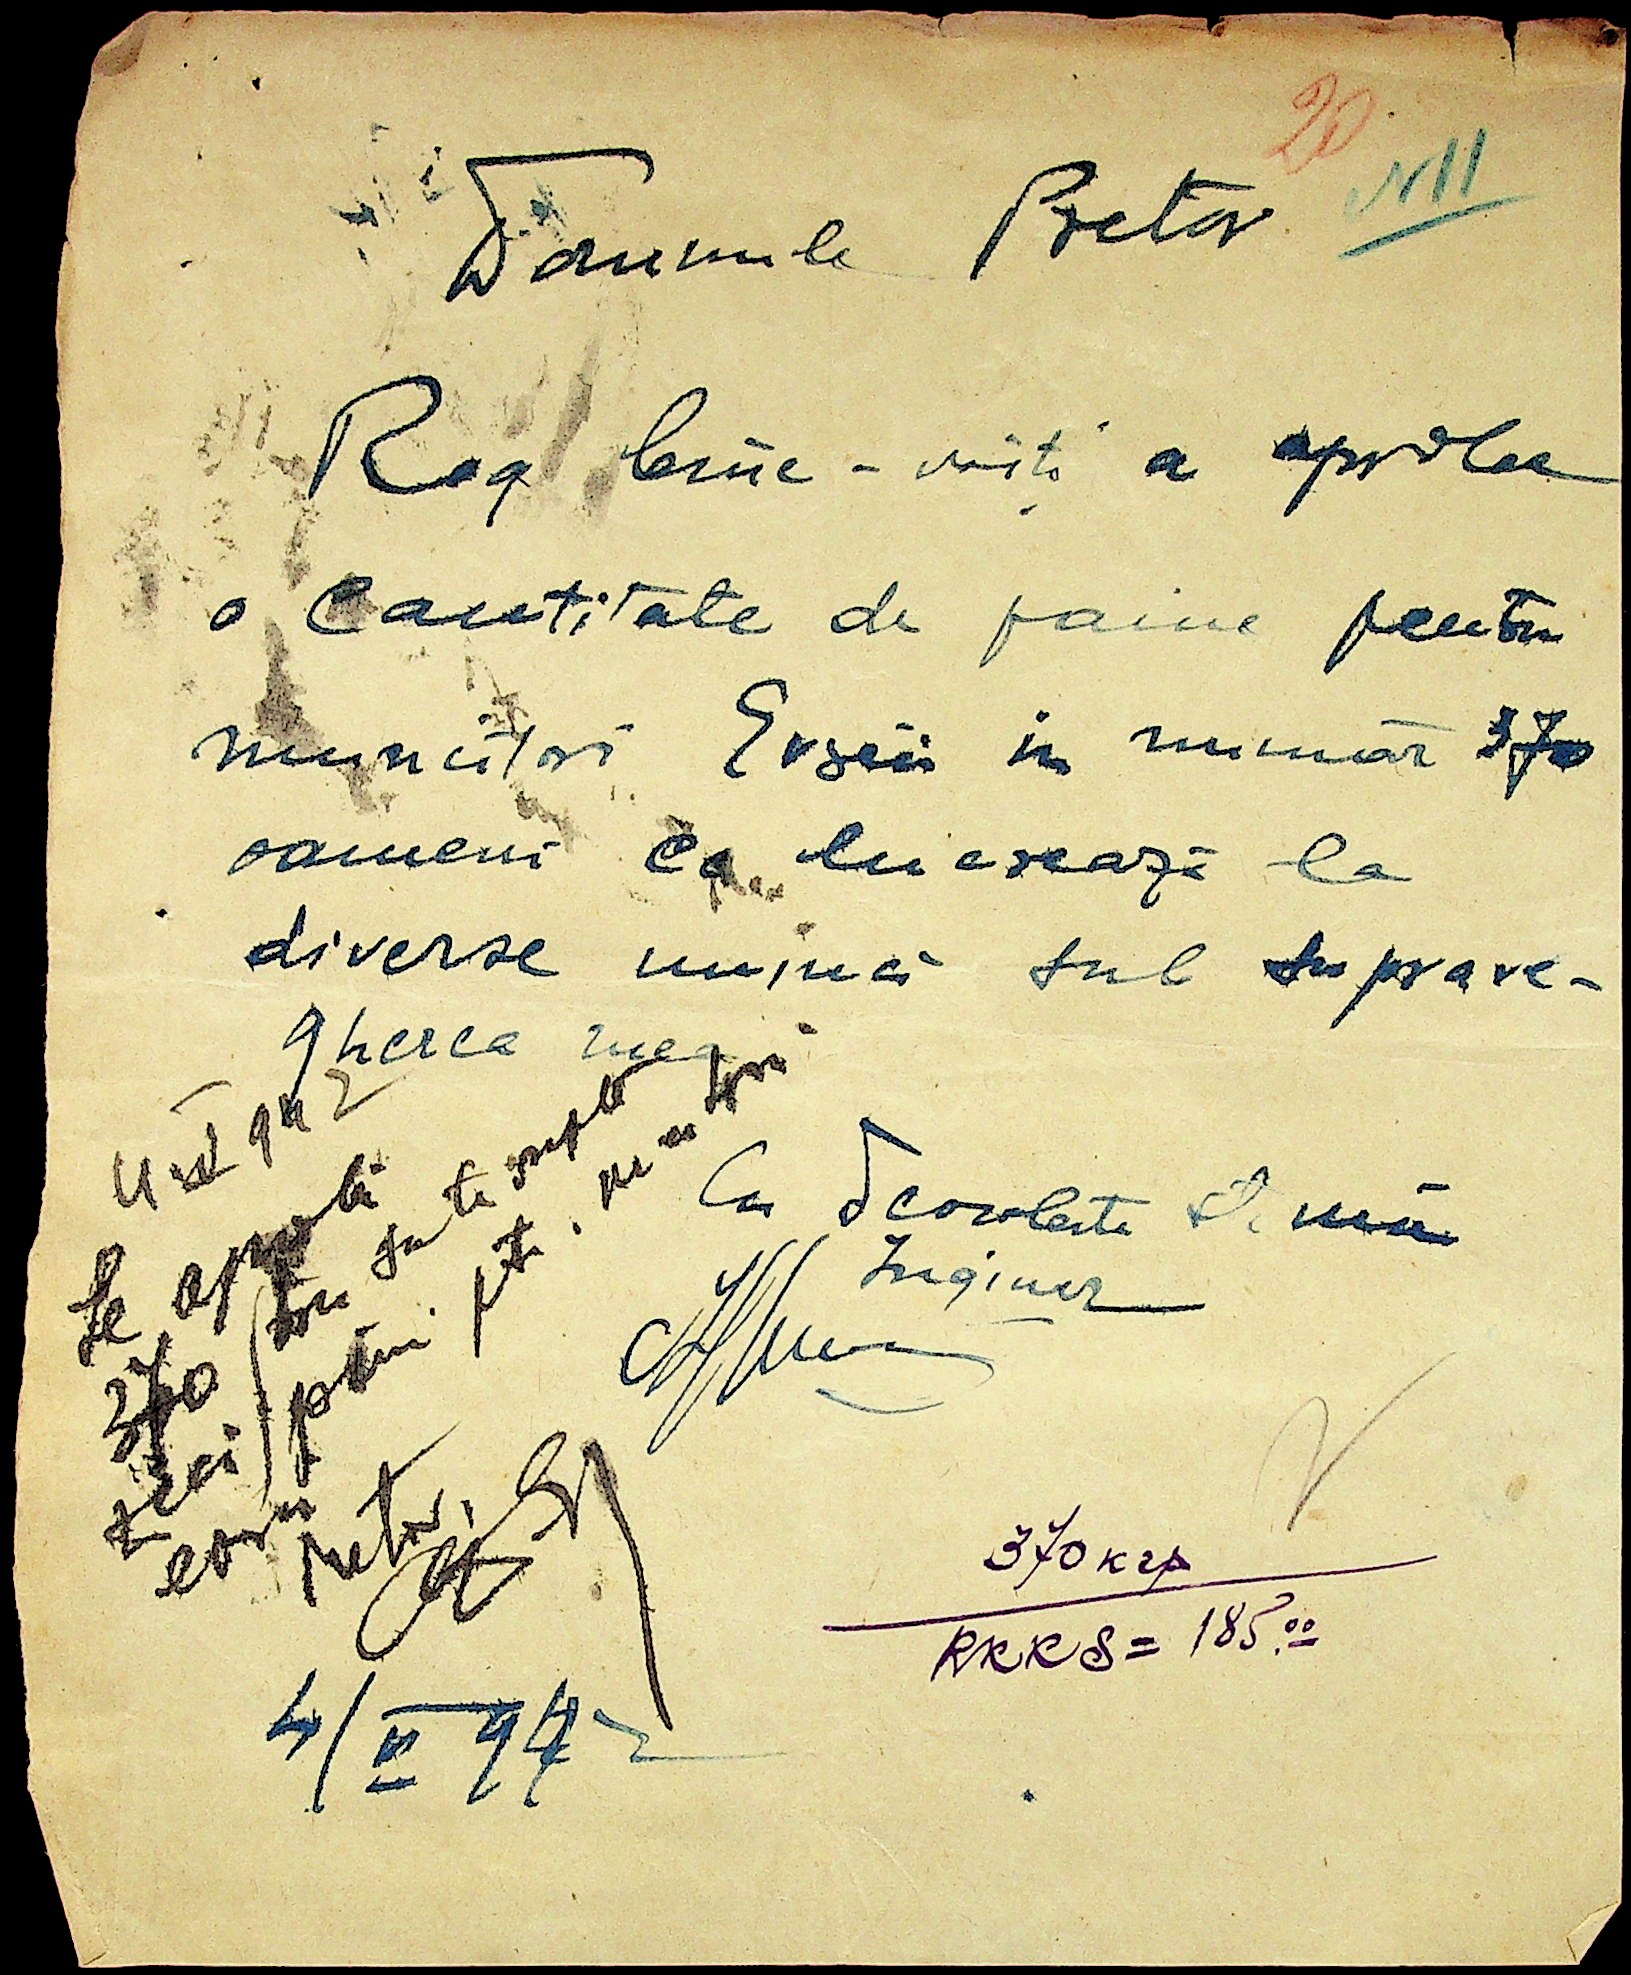 20
N 11
Domnule Pretor
Rog bine-voiți a aproba
o Cantitate de paine pentru
muncitori Evrei in numar 370
oameni ce lucrează la
diverse munci sub suprave-
gherea mea
Cu Deosebită Stimă
Inginer
4 II 942
Se aprobă
370 (trei sute șapte
zeci) pâini ptr. muncitori
evrei
Pretor,
4/II 942
370 кгр
RKKS = 185.00